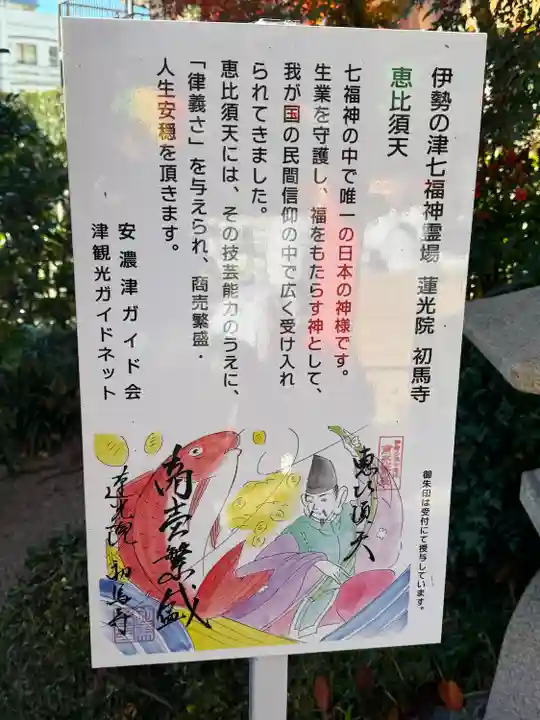 伊勢の津七福神霊場　蓮光院　初馬寺
恵比須天
七福神の中で唯一の日本の神様です。
生業を守護し、福をもたらす神として、
我が国の民間信仰の中で広く受け入れ
られてきました。
恵比須天には、その技芸能力のうえに、
「律義さ」を与えられ、商売繁盛・
人生安穏を頂きます。
安濃津ガイド会
津観光ガイドネット
御朱印は受付にて授与しています。
恵比須天
商売繁盛
蓮光院 初馬寺